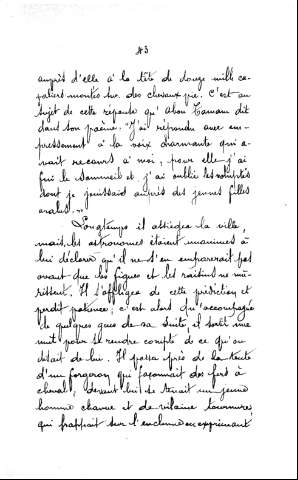 43
auprès d'elle à la tête de douze mille ca-
valiers montés sur des chevaux pie. C'est au
sujet de cette réponse qu'Abou Tamam dit
dans son poème. "J'ai répondu avec em-
pressement à la voix charmante qui a-
vait recours à moi, pour elle j'ai
fui le sommeil et j'ai oublié les voluptés
dont je jouissais auprès des jeunes filles
arabes."
Longtemps il assiégea la ville,
mais les astronomes étaient unanimes à
lui déclarer qu'il ne s'en emparerait pas
avant que les figues et les raisins ne mû-
rissent. Il s'affligea de cette prédiction et
perdit patience; c'est alors qu'accompagné
de quelques uns de sa suite, il sortit une
nuit pour se rendre compte de ce qu'on
disait de lui. Il passa près de la tente
d'un forgeron qui façonnait des fers à
cheval, devant lui se tenait un jeune
homme chauve et de vilaine tournure,
qui frappait sur l'enclume en exprimant